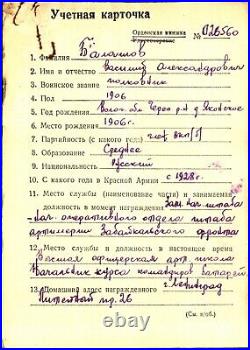 Учетная карточка
Орденская книжка
№ 026560
1. Фамилия Балашов
2. Имя и отчество Василий Александрович
3. Воинское звание полковник
4. Пол 1906
5. Год рождения Волог. обл. Череп. р-н д.
6. Место рождения 1906 г.
7. Партийность (с какого года) член ВКП(б)
8. Образование Среднее
9. Национальность Русский
10. С какого года в Красной Армии с 1928 г.
11. Место службы (наименование части) и занимаемая
должность в момент награждения Зам. нач. штаба
- нач. оперативного отдела штаба
артиллерии Забайкальского фронта
12. Место службы и должность в настоящее время
Высшая офицерская арт. школа
Начальник курса командиров батарей
13. Домашний адрес награжденного г. Ленинград
Литейный пр. 26
(См. н/об.)